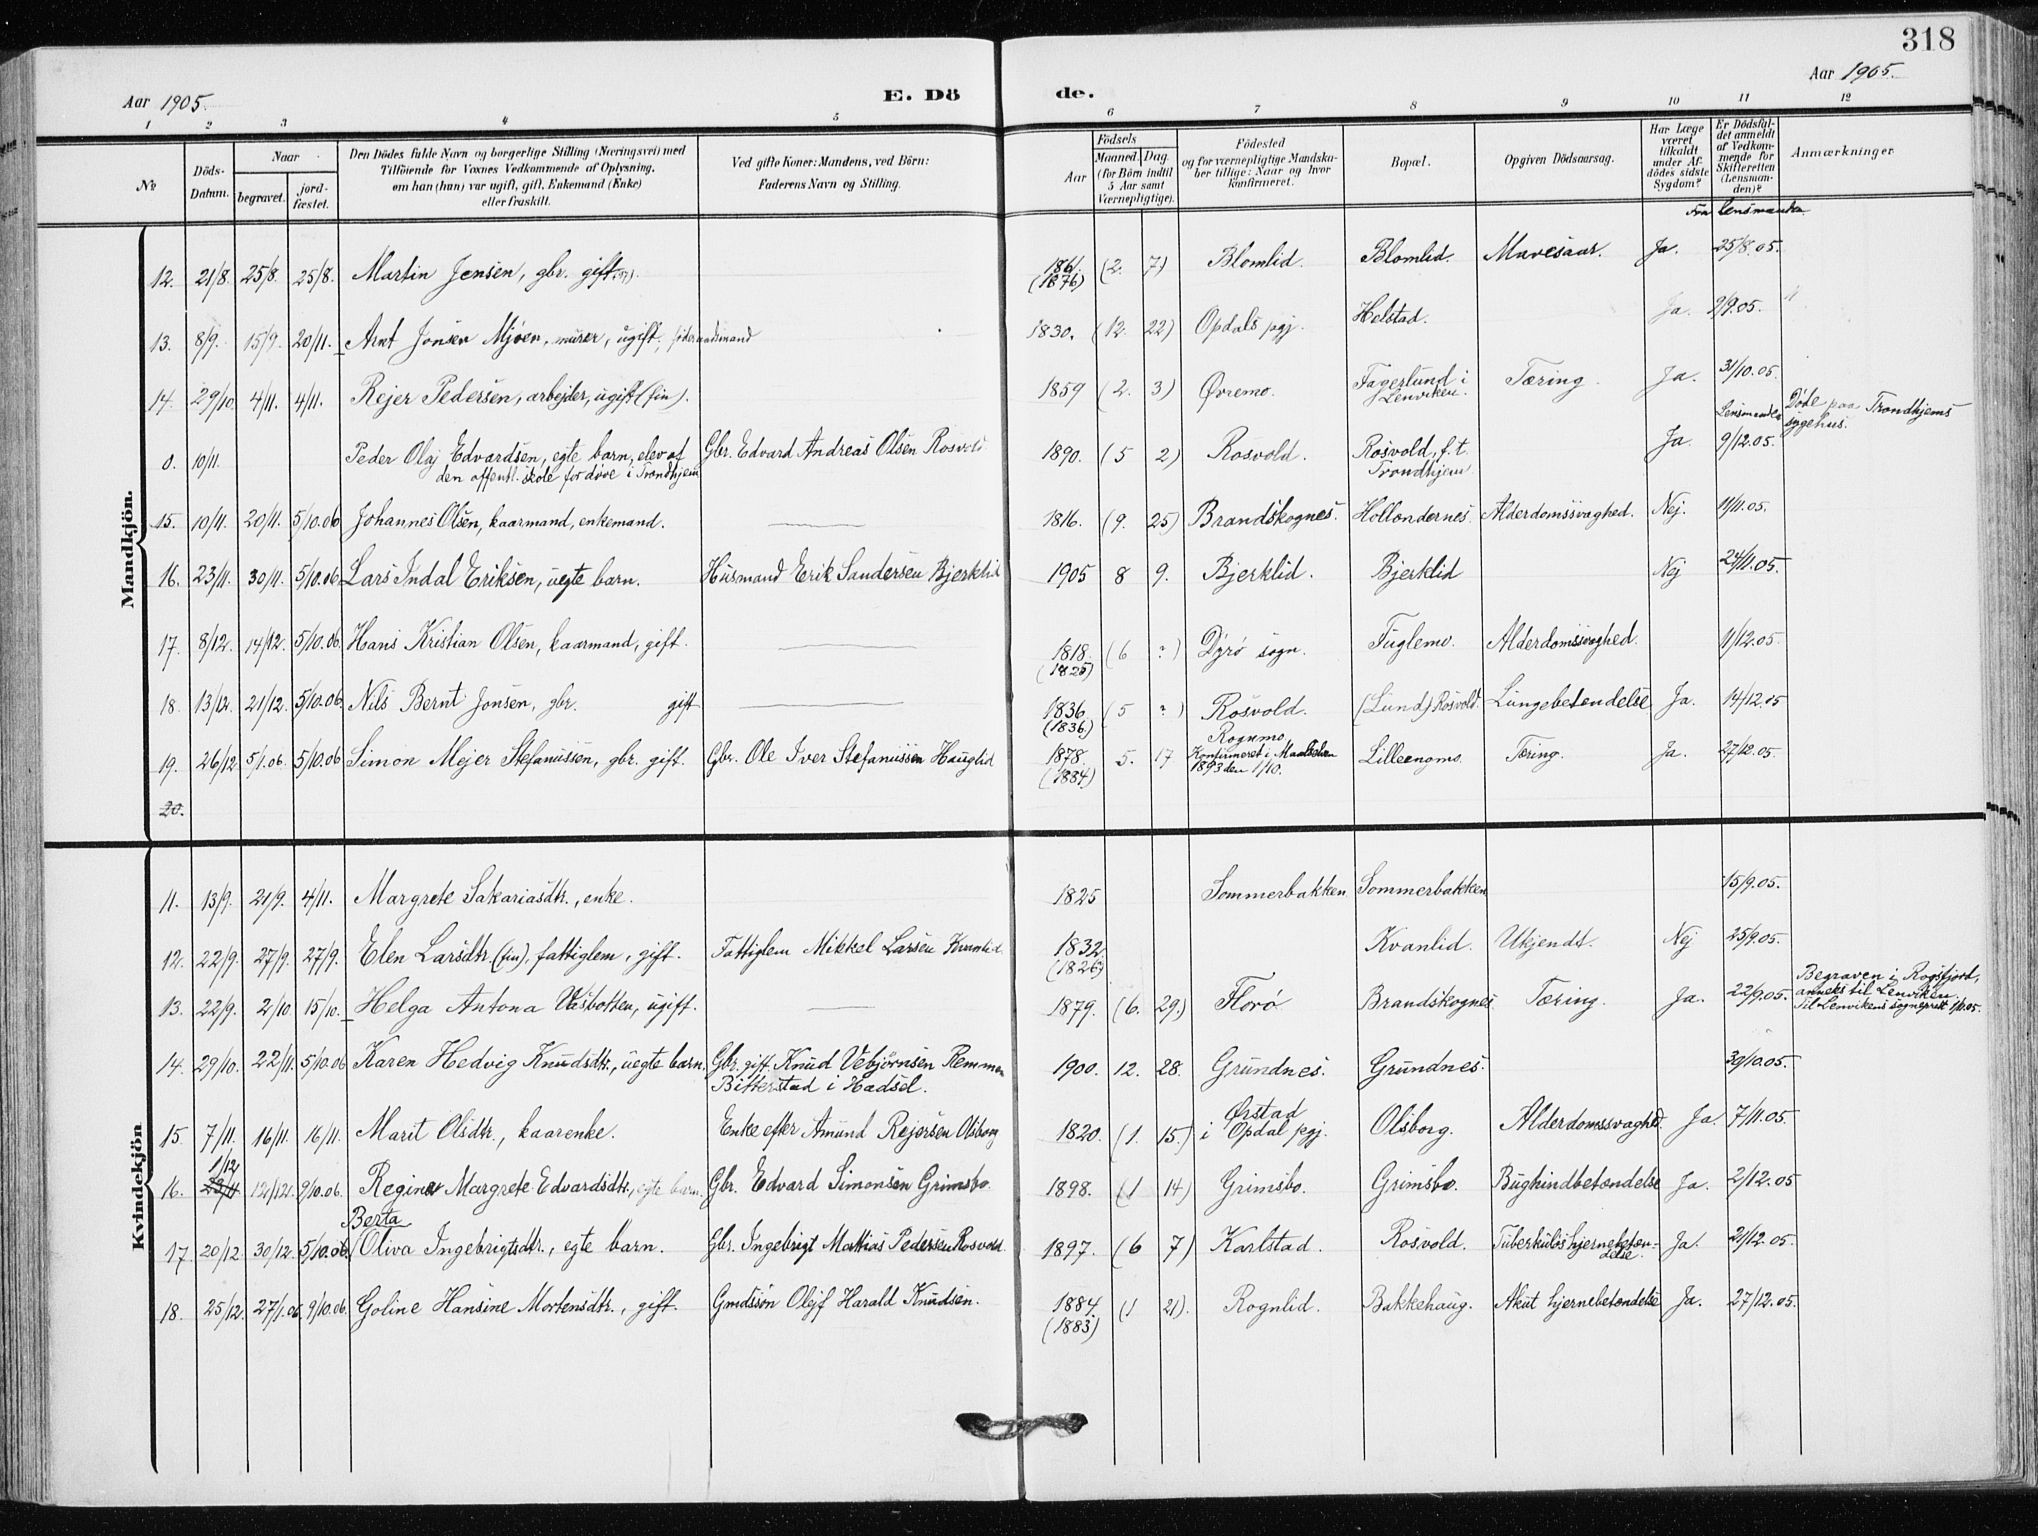 318
Aar 1905.
E. Dö
de.
Aar 1905.
1 2 3 4 5 6 7 8 9 10 11 12
No
Döds-Datum.
Naar
begravet.
jord-fæstet.
Den Dödes fulde Navn og borgerlige Stilling (Næringsvei) med
Tilföiende for Voxnes Vedkommende af Oplysning,
om han (hun) var ugift, gift, Enkemand (Enke)
eller fraskilt.
Ved gifte Koner: Mandens, ved Börn:
Faderens Navn og Stilling.
Födsels
Aar
Maaned. Dag.
(for Börn indtil
5 Aar samt
Værnepligtige).
Födested
og for værnepligtige Mandska-
ber tillige: Naar og hvor
konfirmeret.
Bopæl.
Opgiven Dödsaarsag.
Har Læge
været
tilkaldt
under Af-
dödes sidste
Sygdom?
Er Dödsfal-
det anmeldt
af Vedkom-
mende for
Skifteretten
(Lensman-
den)?
Anmærkninger.
Fra Lensmanden
Mandkjön.
12. 21/8. 25/8. 25/8. Martin Jensen, gbr. gift. 1861. (1876) (2. 7) Blomlid. Blomlid. Mavesaar. Ja. 25/8.05.
13. 8/9. 15/9. 20/11. Arnt Jonsen Mjøen, murer, ugift, 1830. (12. 22) Opdals pgj. Helstad. Ja. 9/9.05.
14. 29/10 4/11. 4/11. Rejer Pedersen, arbejder, ugift (fin). 1859 (2. 3) Øvremo. Fagerlund i Lenviken. Tæring. Ja. 31/10.05.
Lensmanden
0. 10/11. Peder Olaj Edvardsen, egte barn, elev af
den offentl. skole for døve i Trondhjem
Gbr. Edvard Andreas Olsen Rosvold 1890. (5 2) Rosvold. Rosvold, f.t. Trondhjem Ja. 9/12.05. Døde paa Trondhjems sygehus.
15. 10/11. 20/11. 5/10.06 Johannes Olsen, kaarmand, enkemand. 1816. (9. 25) Brandskognes. Hollendernes. Alderdomssvaghed. Nej. 11/11.05.
16. 23/11. 30/11. 5/10.06. Lars Indal Eriksen, uegte barn. Husmand Erik Sandersen Bjerklid 1905 8 9. Bjerklid. Bjerklid Nej 24/11.05.
17. 8/12. 14/12. 5/10.06. Hans Kristian Olsen, kaarmand, gift. 1818. (1825) (6 ?) Dyrø sogn. Fuglemo. Alderdomssvaghed. 11/12.05.
18. 13/12. 21/12. 5/10.06. Nils Bernt Jonsen, gbr. gift 1836 (1836.) (5 ?) Rosvold. (Lund) Rosvold. Lungebetendelse Ja. 14/12.05
19. 26/12 5/1.06. 5/10.06 Simon Mejer Stefanussen, gbr. gift. Gbr. Ole Iver Stefanussen Hauglid 1878. (1884) 5. 17 Rognmo.
Konfirmeret i Maalselven
1893 den 1/10. Lilleengmo. Tæring. Ja. 27/12.05
20.
Kvindekjön
11. 13/9. 21/9. 4/11. Margrete Sakariasdtr., enke. 1825 Sommerbakken Sommerbakken 15/9.05.
12. 22/9. 27/9. 27/9. Elen Larsdtr. (fin), fattiglem, gift. Fattiglem Mikkel Larsen Kvanlid 1832 (1826) Kvanlid. Ukjendt. Nej 25/9.05.
13. 22/9. 2/10 15/10. Helga Antona Vasbotten, ugift. 1879. (6. 29.) Florø Brandskognes Tæring. Ja. 22/9.05. Begraven i Rogsfjord,
anneks til Lenviken.
Til Lenvikens sogneprest 1/10.05.
14. 29/10. 22/11. 5/10.06 Karen Hedvig Knudsdtr., uegte barn. Gbr. gift Knud Vebjørnsen Remmen
Bitterstad i Hadsel. 1900. 12. 28. Grundnes. Grundnes. 30/10.05.
15. 7/11. 16/11. 16/11. Marit Olsdtr., kaarenke. Enke efter Amund Rejersen Olsborg 1820. (1. 15.) Ørstad
i Opdal pgj. Olsborg. Alderdomssvaghed Ja. 7/11.05.
16. 1/12 23/11 12/12. 9/10.06. Regine Margrete Edvardsdtr., egte barn. Gbr. Edvard Simonsen Grimsbo. 1898. (1 14) Grimsbo. Grimsbo. Bughindbetendelse Ja. 2/12.05
17 20/12. 30/12. 5/10.06. Berta
Oliva Ingebrigtsdtr., egte barn. Gbr. Ingebrigt Mathias Pedersen Rosvold. 1897. (6 7) Karlstad. Rosvold. Tuberkuløs hjernebeten-
delse. Ja. 21/12.05.
18. 25/12. 27/1.06. 9/10.06. Goline Hansine Mortensdtr., gift. Gmdssøn Olejf Harald Knudsen. 1884 (1883) (1 21). Rognlid. Bakkehaug. Akut hjernebetendelse Ja. 27/12.05.